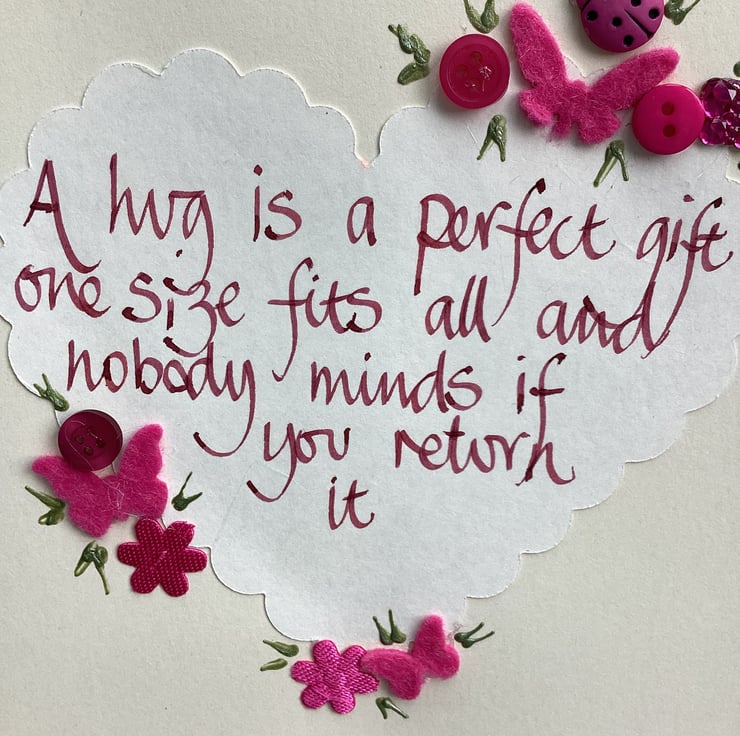 A hug is a perfect gift
one size fits all and
nobody minds if
you return
it